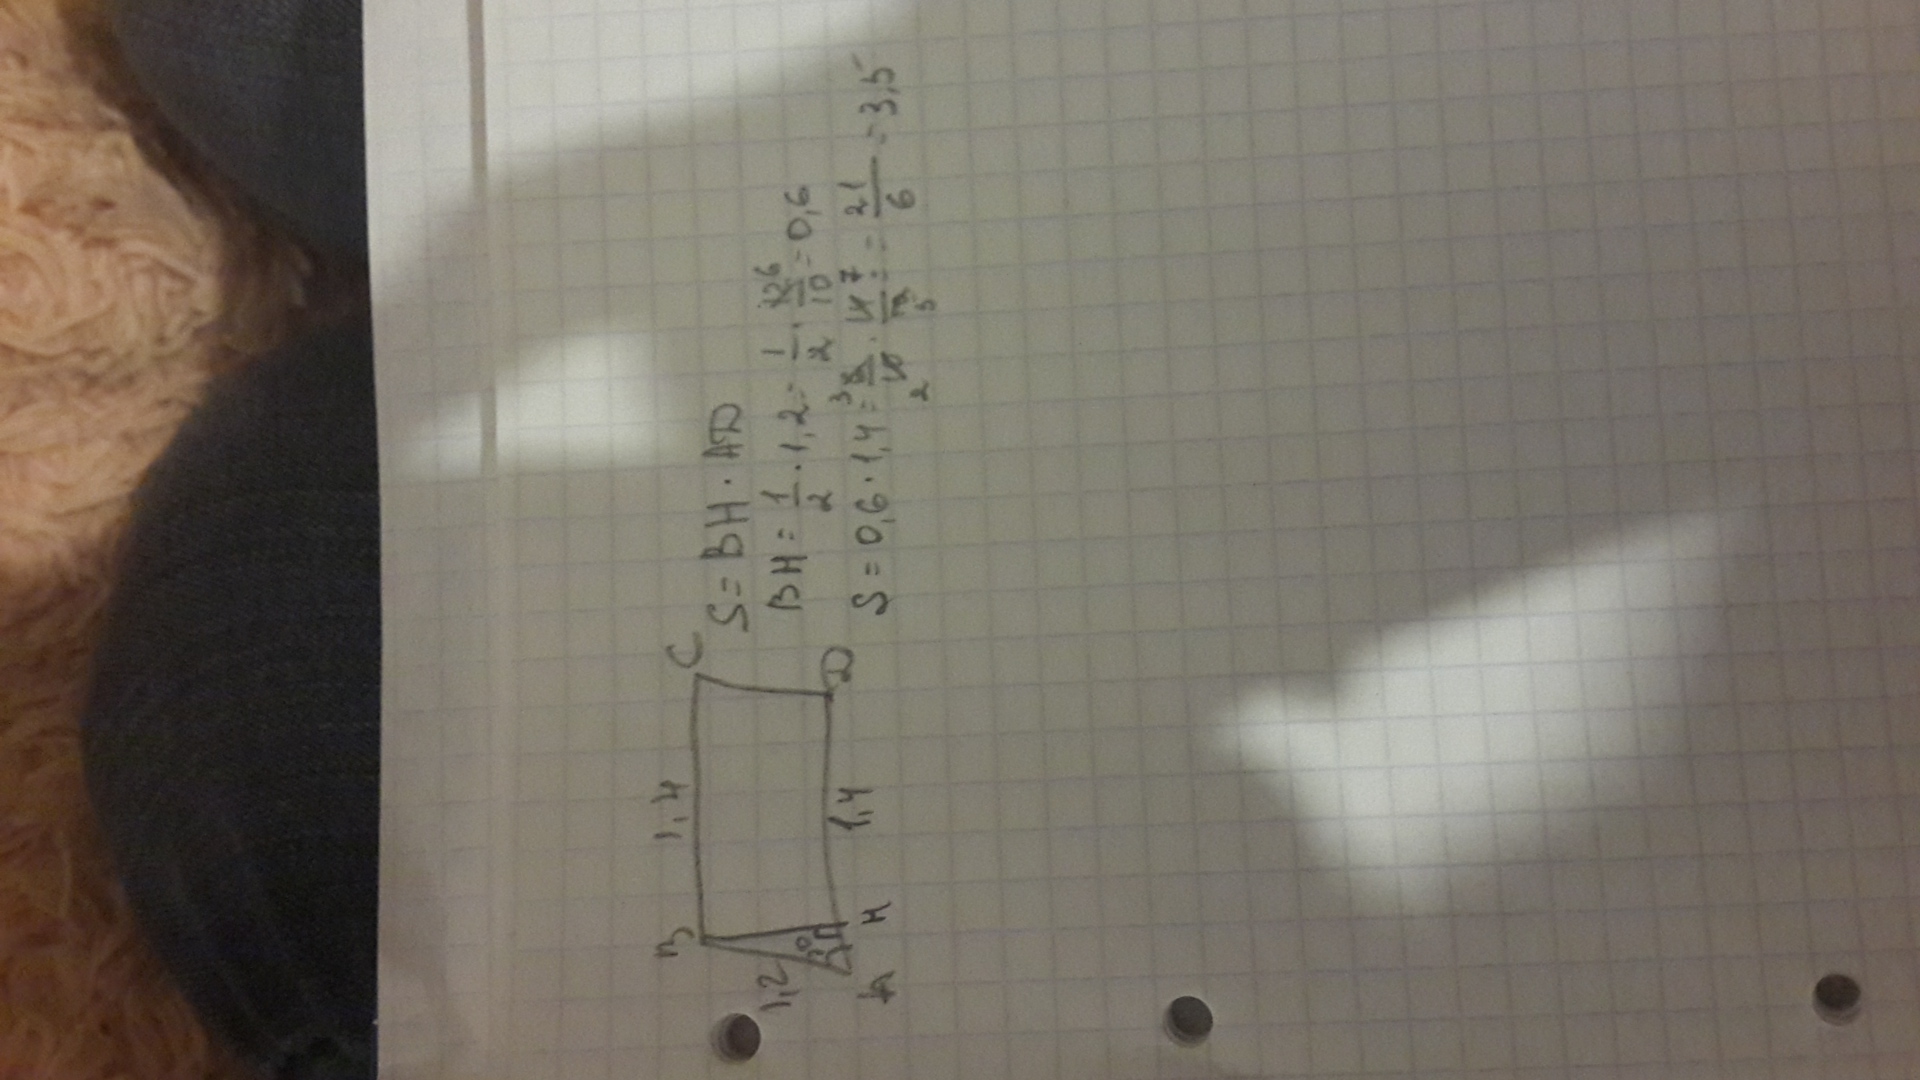 B 1,4 C
1,2 30°
A H 1,4 D
S = BH · AD
BH = 1/2 · 1,2 = 1/2 · 12 6/10 = 0,6
S = 0,6 · 1,4 = 3 6/10 2 · 14 7/10 5 = 21/6 = 3,5